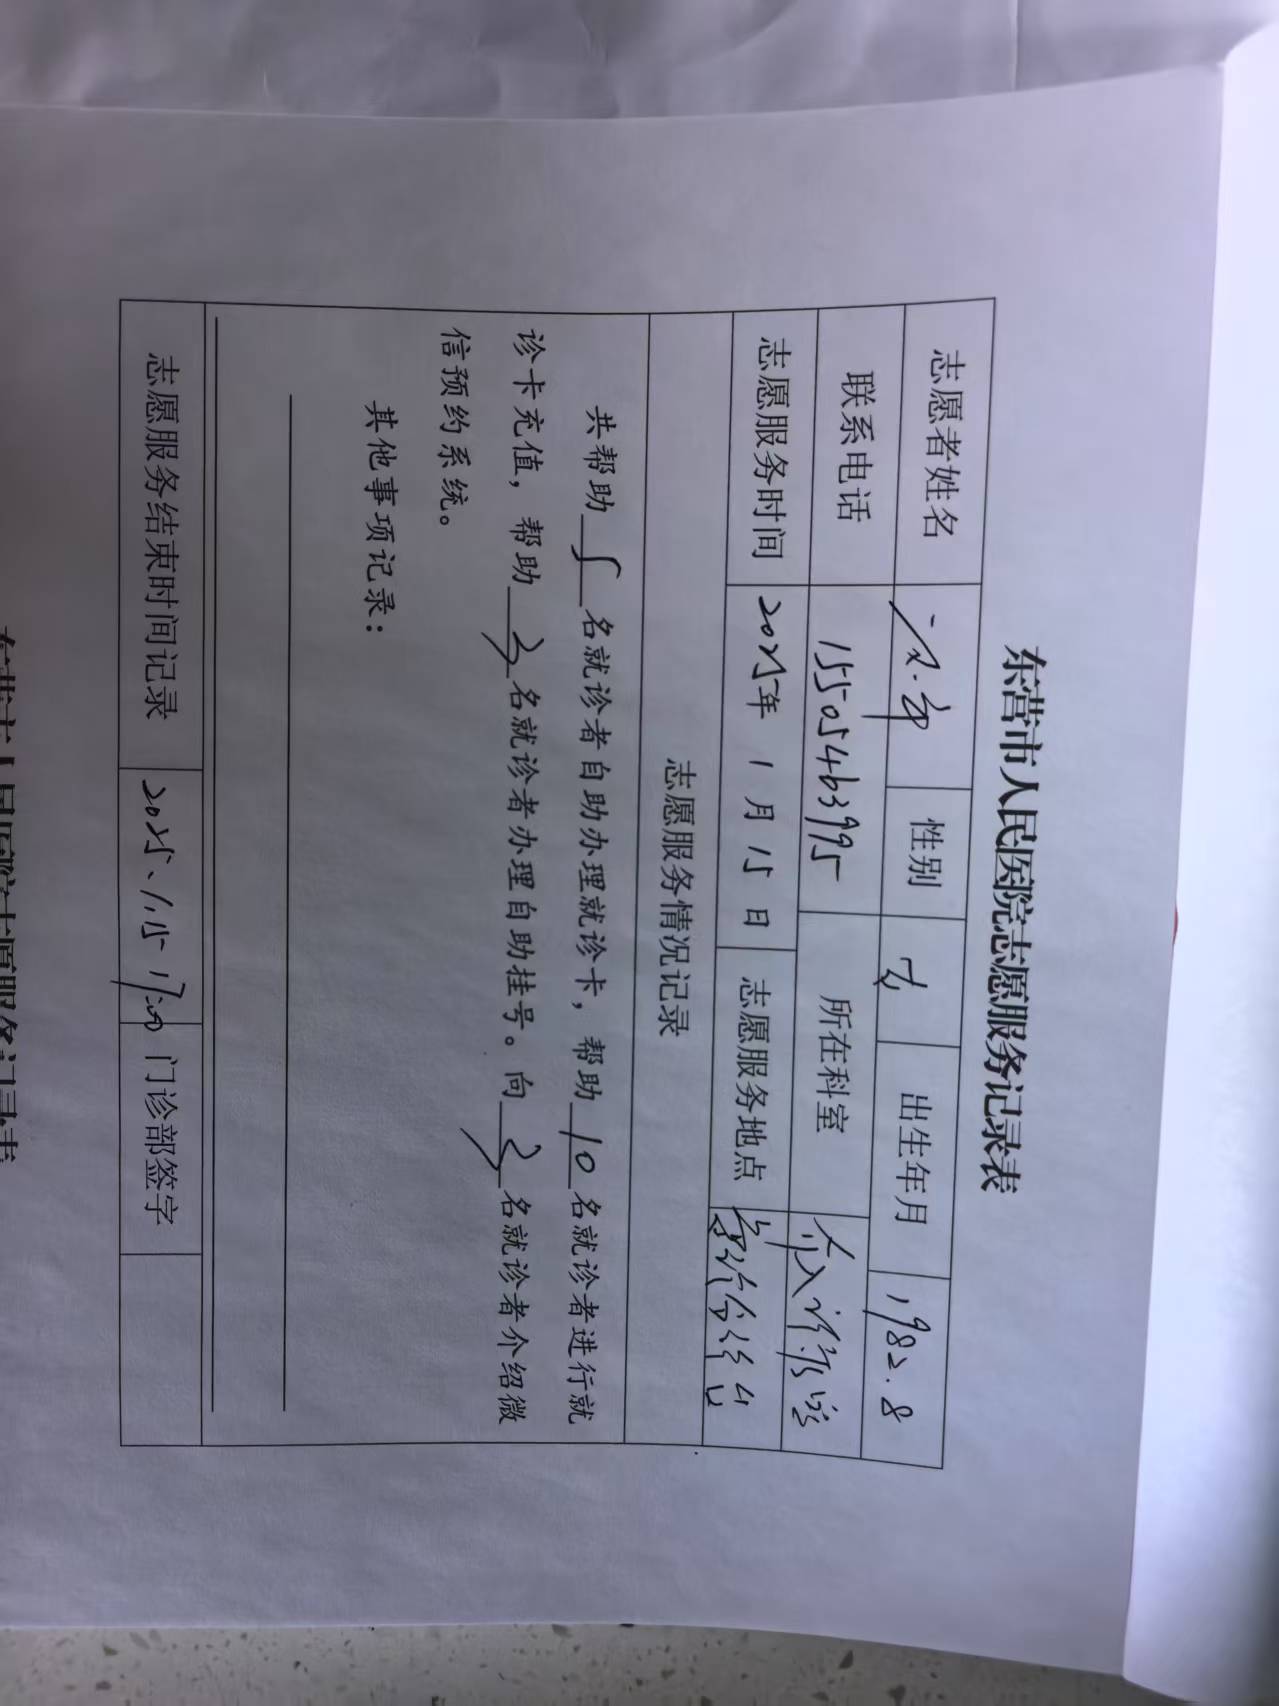 东营市人民医院志愿服务记录表
志愿者姓名 性别 女 出生年月 1982.8
联系电话 15505463995 所在科室 介入诊疗
志愿服务时间 2025年 1月 15日 志愿服务地点
志愿服务情况记录
共帮助 5 名就诊者自助办理就诊卡，帮助 10 名就诊者进行就
诊卡充值，帮助 2 名就诊者办理自助挂号。向 2 名就诊者介绍微
信预约系统。
其他事项记录：
志愿服务结束时间记录 2025、1.15 17:00 门诊部签字
东营市人民医院志愿服务记录表